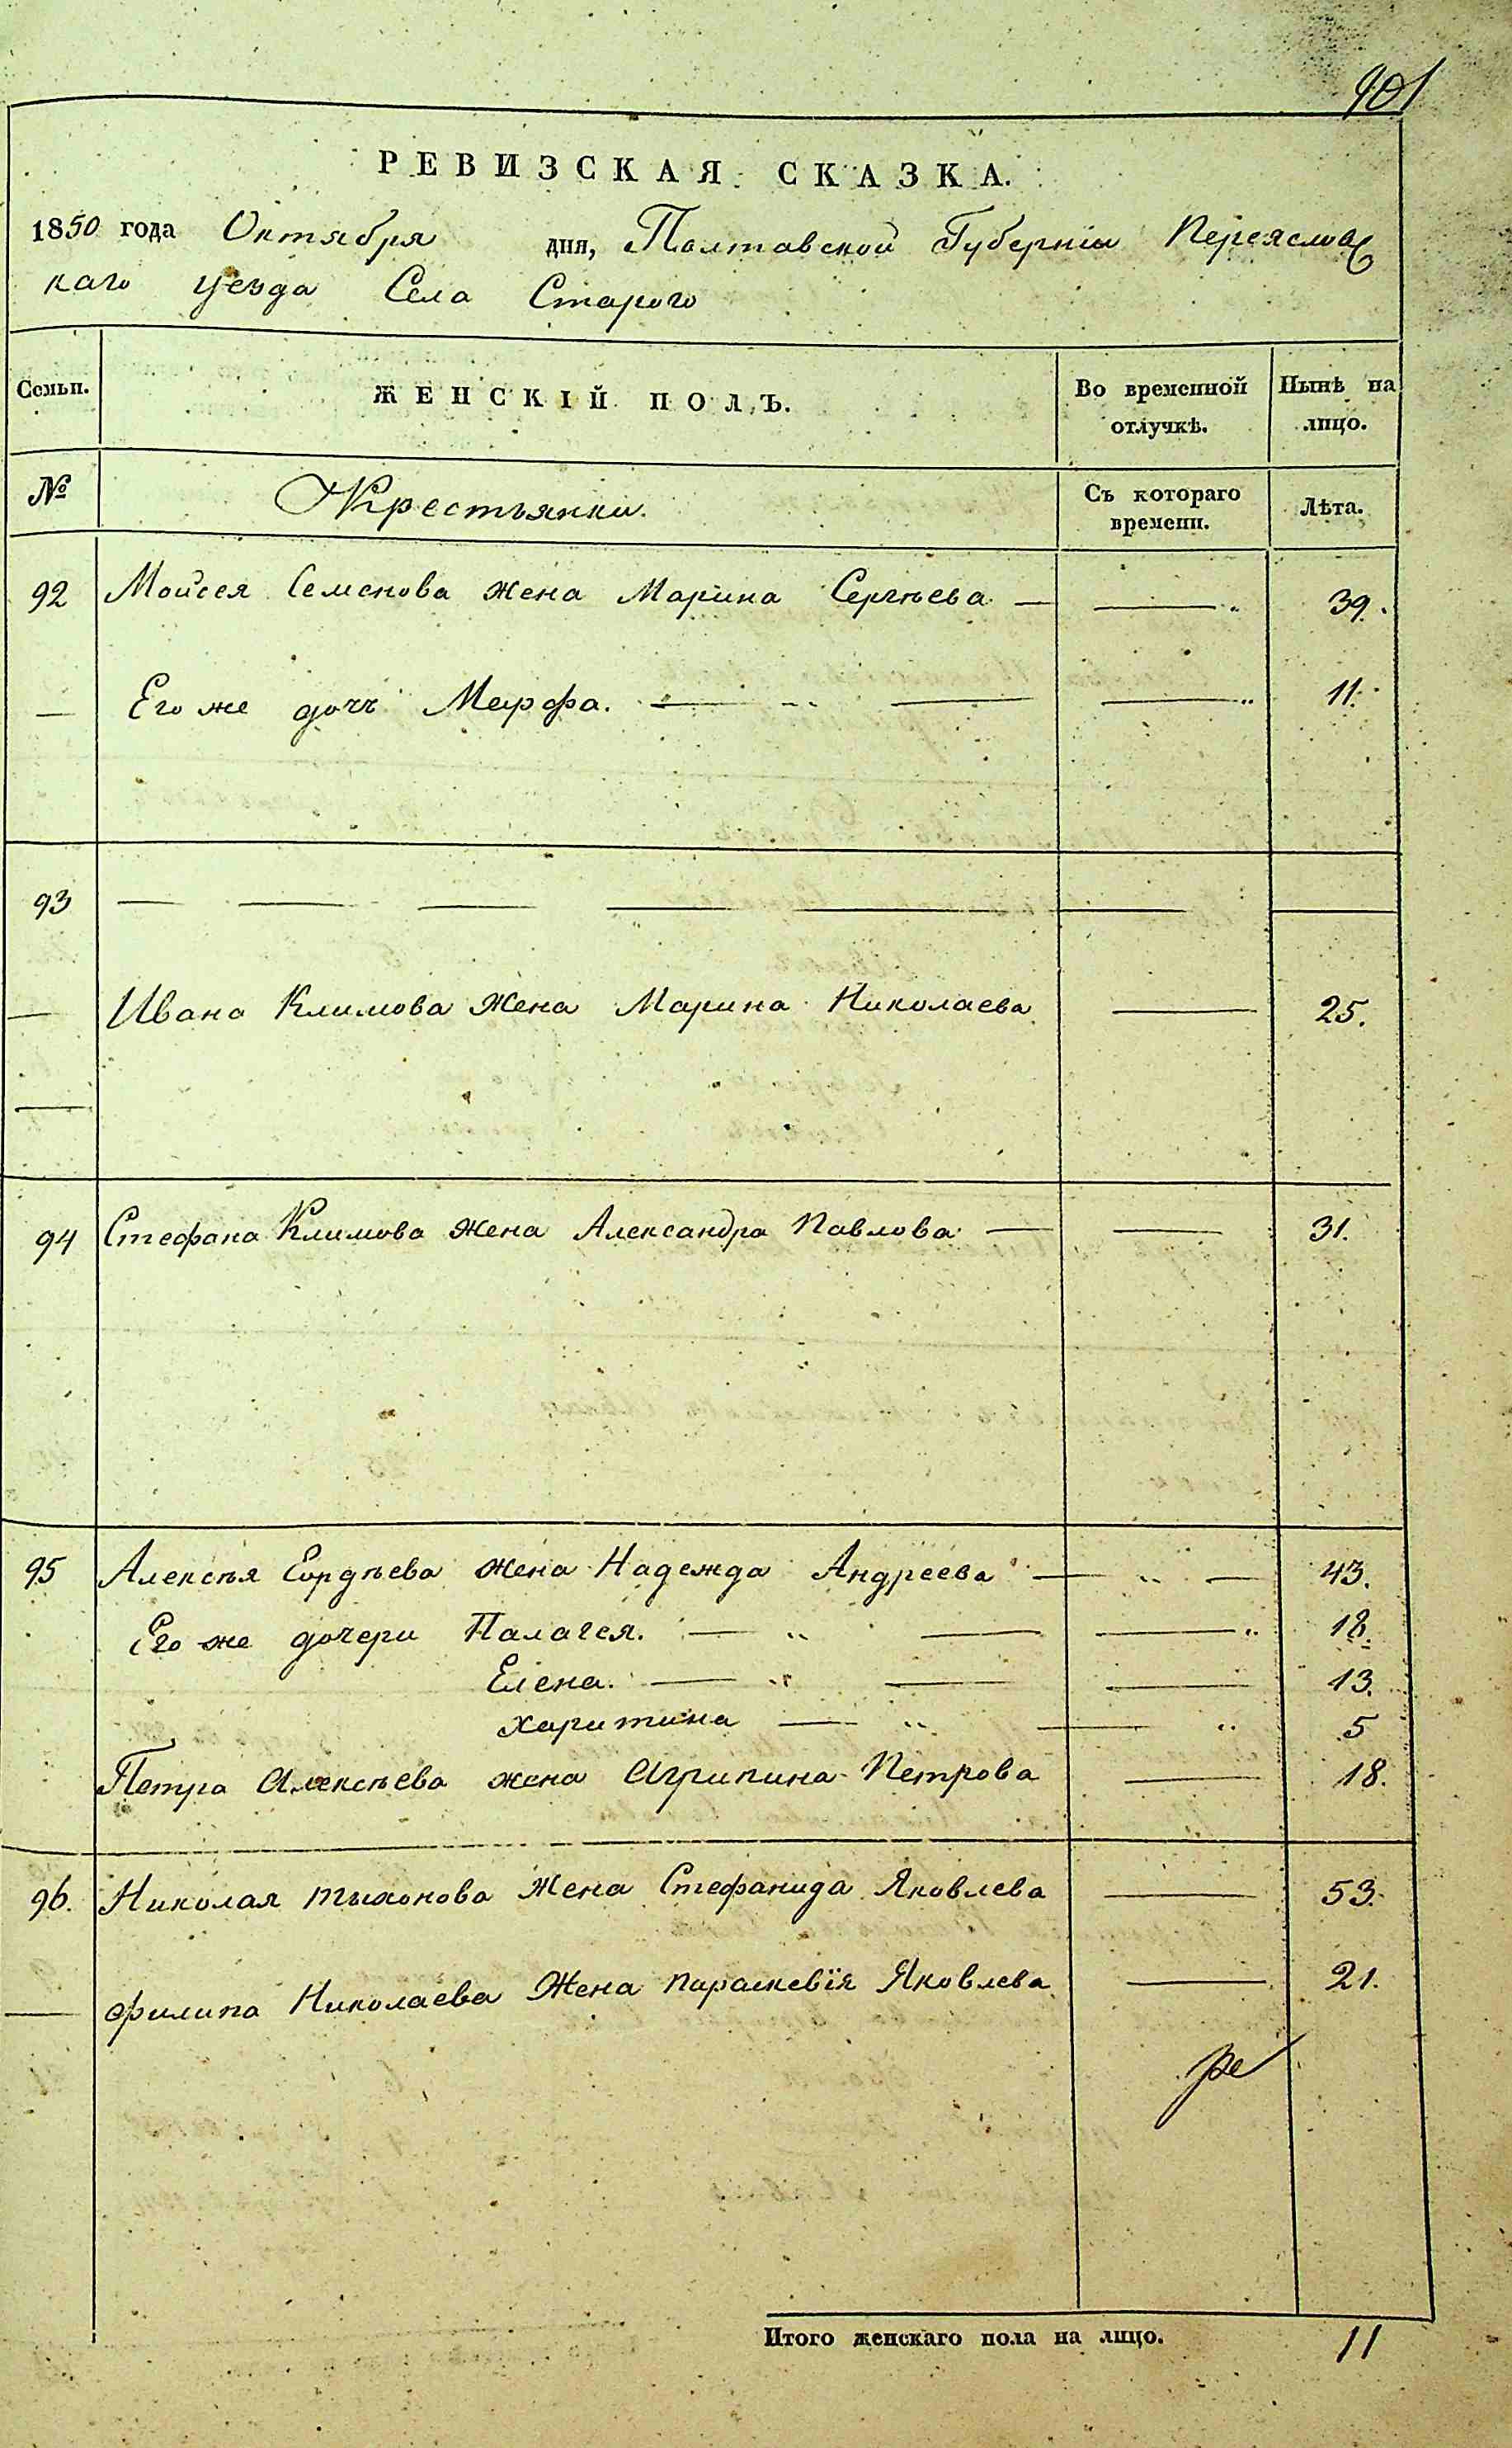 901
РЕВИЗСКАЯ СКАЗКА.
1850 года Октября дня, Полтавской Губерніи Переяславс
каго уезда Села Старого
Семьи. ЖЕНСКІЙ ПОЛЪ. Во временной отлучкѣ. Нынѣ на лицо.
№ Крестьянки. Съ котораго времени. Лѣта.
92 Мойсея Семенова жена Марина Сергѣева — — 39.
— Его же дочь Марфа. — — — 11.
93 — — — — — — —
— Ивана Климова жена Марина Николаева — 25.
—
94 Стефана Климова жена Александра Павлова — — 31.
95 Алексѣя Гордѣева жена Надежда Андреева — — 43.
Его же дочери Палагея. — — — 18.
Елена. — — — 13.
Харитина — — 5
Петра Алексѣева жена Агрипина Петрова — 18.
96. Николая Тыхонова жена Стефанида Яковлева — 53.
— Филипа Николаева жена Параскевія Яковлева — 21.
Итого женскаго пола на лицо. 11